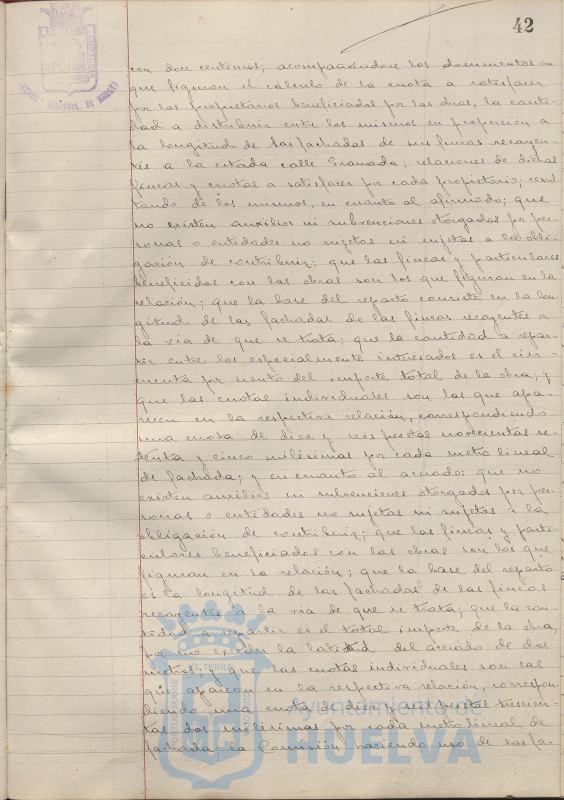 42
con doce centimos; acompañandose los documentos en
que figuran el cálculo de la cuota a satisfacer
por los propietarios beneficiados por las obras, la canti-
dad a distribuir entre los mismos en proporción a
la longitud de las fachadas de sus fincas recayen-
tes a la citada calle Granada; relaciones de dichas
fincas y cuotas a satisfacer por cada propietario; resul
tando de los mismos, en cuanto al afirmado; que
no existen auxilios ni subvenciones otorgados por per-
sonas o entidades no sujetas ni sujetas a la obli-
gación de contribuir; que las fincas y particulares
beneficiados con las obras son los que figuran en la
relación; que la base del reparto consiste en la lon
gitud de las fachadas de las fincas recayentes a
la via de que se trata; que la cantidad a repar-
tir entre los especialmente interesados es el cin-
cuenta por ciento del importe total de la obra; y
que las cuotas individuales son las que apa-
recen en la respectiva relación, correspondiendo
una cuota de diez y seis pesetas novecientas se-
tenta y cinco milésimas por cada metro lineal
de fachada; y en cuanto al acerado: que no
existen auxilios ni subvenciones otorgados por per-
sonas o entidades no sujetas ni sujetas a la
obligación de contribuir; que las fincas y parti-
culares beneficiados con las obras son los que
figuran en la relación; que la base del reparto
es la longitud de las fachadas de las fincas
recayentes a la via de que se trata; que la can-
tidad a repartir es el total importe de la obra,
por no exceder la latitud del acerado de dos
metros; y que las cuotas individuales son las
que aparecen en la respectiva relación, correspon-
diendo una cuota de diez y seis pesetas trescien-
tas dos milésimas por cada metro lineal de
fachada; la Comisión, haciendo uso de las fa-
Ayuntamiento de
HUELVA